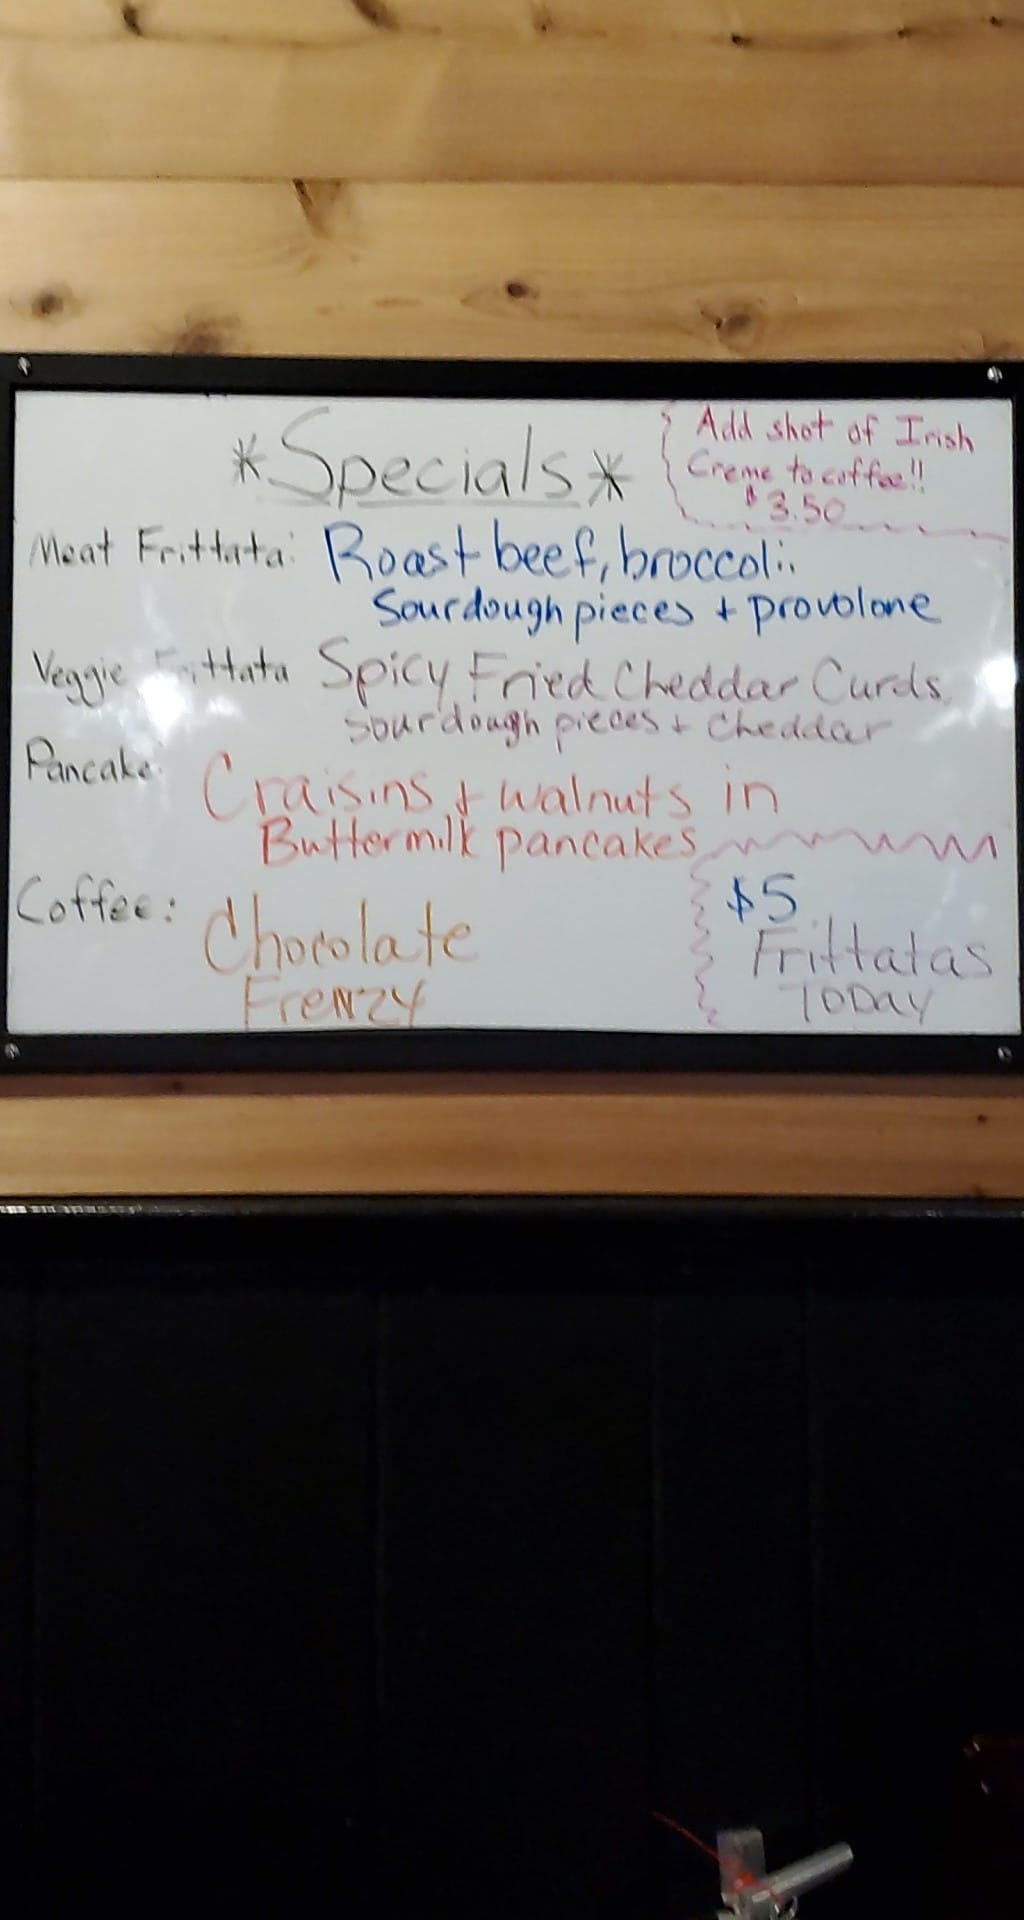 *Specials*
Add shot of Irish
Creme to coffee!!
$3.50
Meat Frittata: Roast beef, broccoli,
Sourdough pieces + provolone
Veggie Frittata Spicy Fried Cheddar Curds,
sourdough pieces + cheddar
Pancake: Craisins + walnuts in
Buttermilk pancakes
Coffee: Chocolate
Frenzy
$5
Frittatas
TODAY